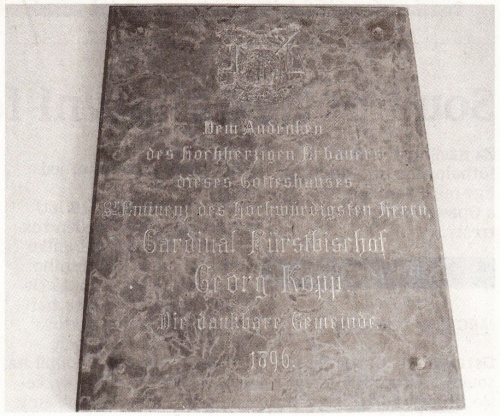 Dem Andenken
des Hochherzigen Erbauers
dieses Gotteshauses
Sr Eminenz des Hochwürdigsten Herrn,
Cardinal Fürstbischof
Georg Kopp
Die dankbare Gemeinde.
1896.